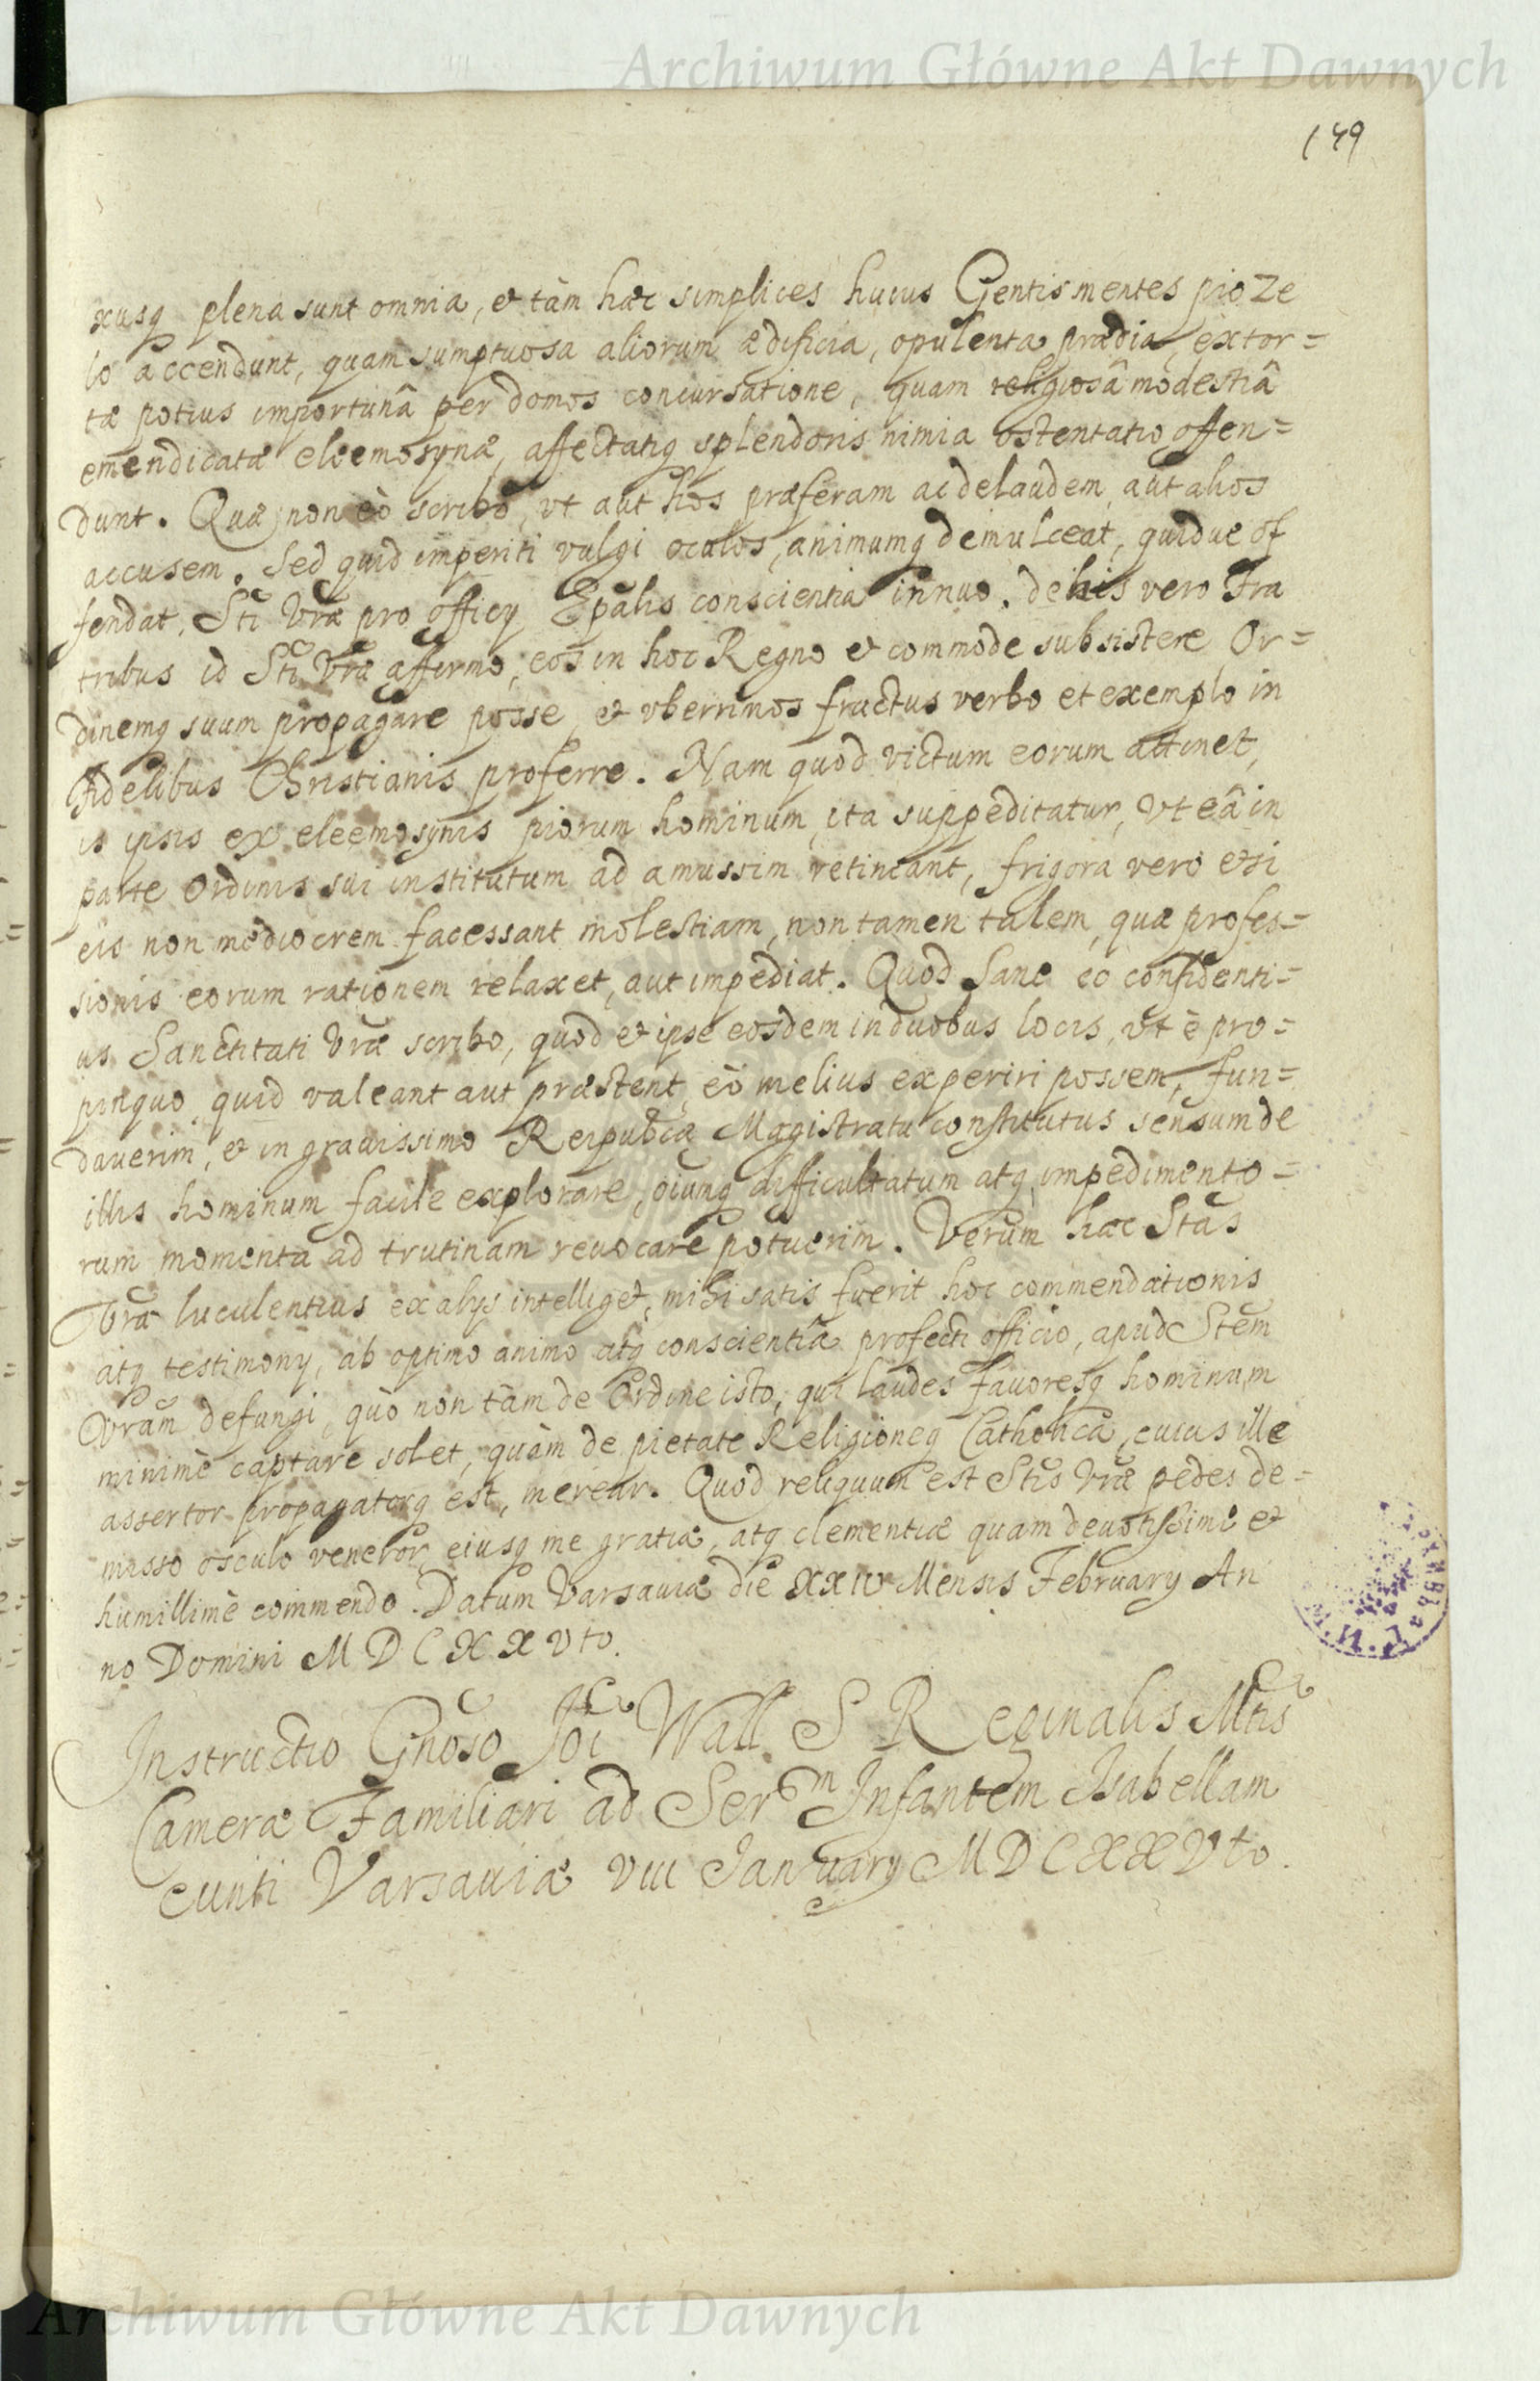 Archiwum Główne Akt Dawnych
149
xusq plena sunt omnia, et tàm hæc simplices huius Gentis mentes pio ze
lo accendunt, quam sumptuosa aliorum ædificia, opulenta prædia, extor=
tæ potius importunâ per domos concursatione, quam religiosâ modestiâ
emendicatæ eleemosynæ, affectatiq splendoris nimia ostentatio offen=
dunt. Quæ non eò scribo, vt aut hos præferam ac delaudem, aut alios
accusem. Sed quid imperiti vulgi oculos, animumq demulceat, quidue of
fendat, Sti Vræ pro officÿ Epalis conscientia innuo. de his vero Fra
tribus id Sti Vræ affirmo, eos in hoc Regno et commode subsistere Or=
dinemq suum propagare posse, et vberrimos fructus verbo et exemplo in
Fidelibus Christianis proferre. Nam quod victum eorum attinet,
is ipsis ex eleemosynis piorum hominum ita suppeditatur, vt eâ in
parte Ordinis sui institutum ad amussim retineant, frigora vero etsi
eis non mediocrem facessant molestiam, non tamen talem, quæ profes=
sionis eorum rationem relaxet, aut impediat. Quod sane eo confidenti=
us Sanctitati Vræ scribo, quod et ipse eosdem in duobus locis, vt è pro=
pinquo quid valeant aut præstent, eò melius experiri possem, fun=
dauerim, et in grauissimo Reipubcæ Magistratu constitutus sensum de
illis hominum facile explorare, oiunq difficultatum atq impedimento=
rum momenta ad trutinam reuocare potuerim. Verum hæc Stas
Vra luculentius ex alÿs intelliget, mihi satis fuerit hoc commendationis
atq testimonÿ, ab optimo animo atq conscientia profecti officio, apud Stem
Vram defungi, quò non tàm de Ordine isto, qui laudes fauoresq hominum
minimè captare solet, quàm de pietate Religioneq Catholica, cuius ille
assertor propagatorq est, merear. Quod reliquum est Stis Vræ pedes de=
misso osculo veneror, eiusq me gratiæ, atq clementiæ quam deuotissime et
humillimè commendo. Datum Varsauiæ die XXIV Mensis Februarÿ An
no Domini M D C X X Vto.
Instructio Gnoso Joi Wall S R Reginalis Mtis
Cameræ Familiari ad Serm Infantem Isabellam
eunti Varsauiæ VIII Januarÿ M D C X X Vto.
Archiwum Główne Akt Dawnych